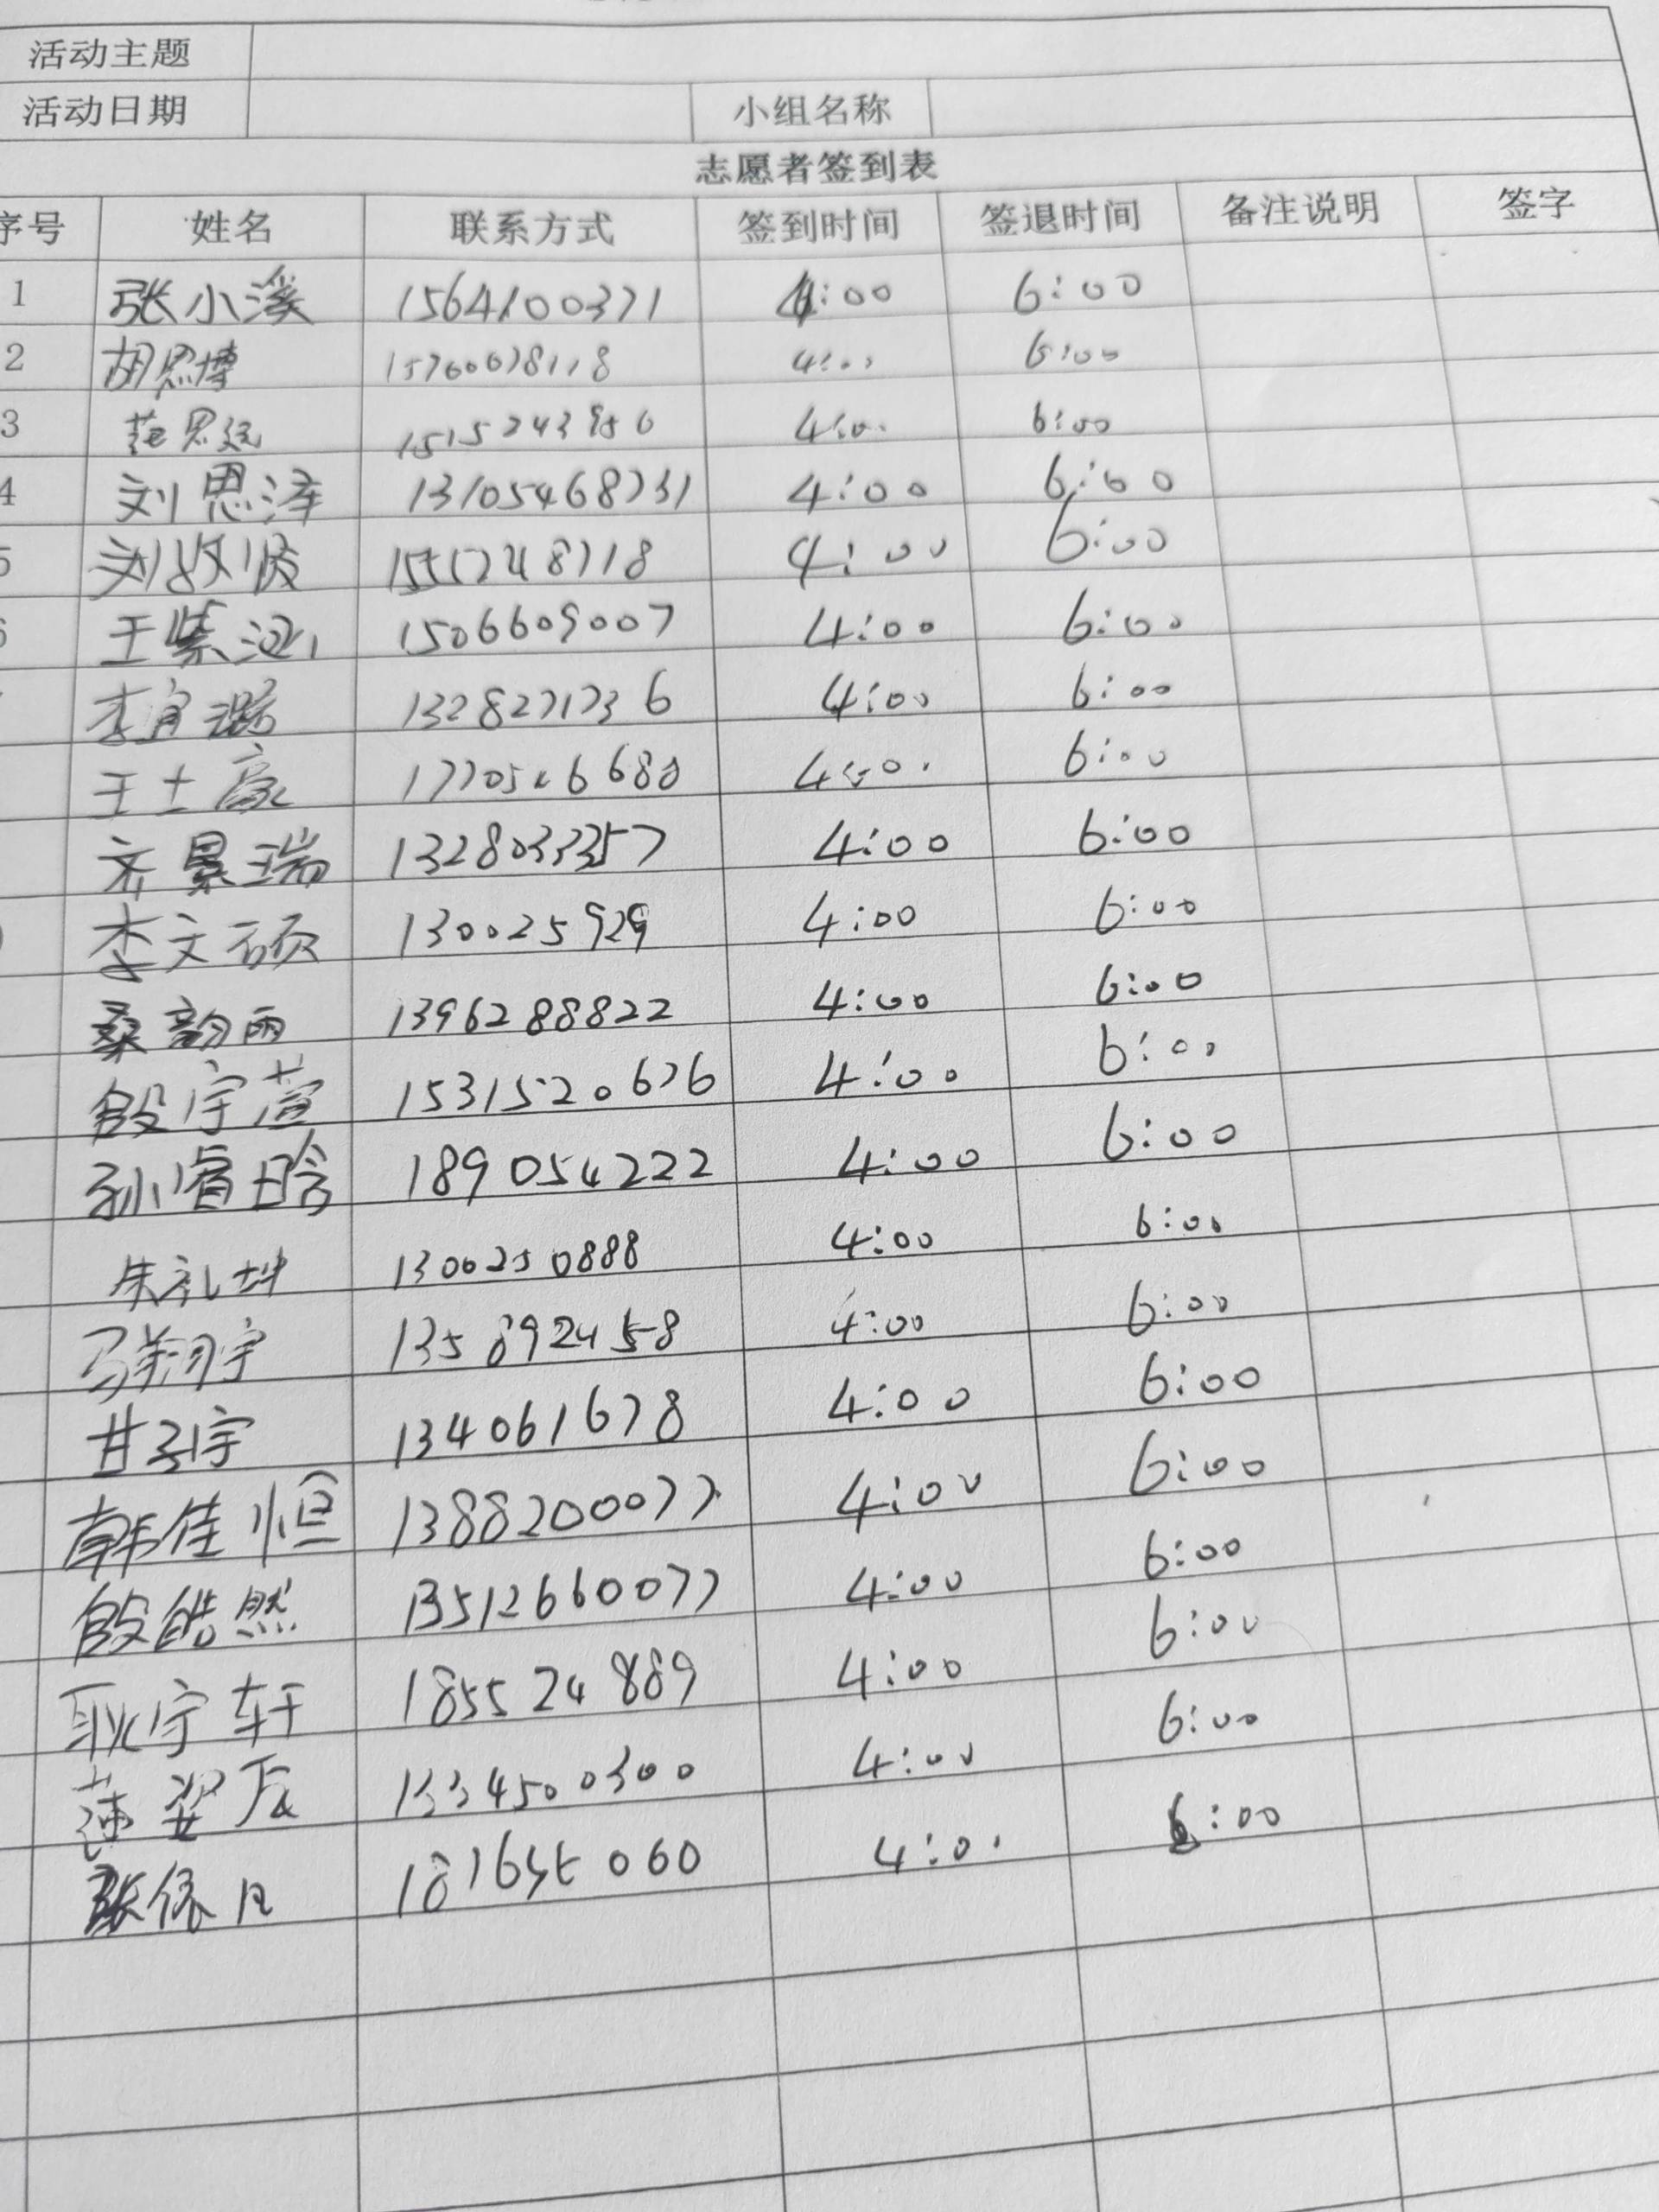 活动主题
活动日期 小组名称
志愿者签到表
序号 姓名 联系方式 签到时间 签退时间 备注说明 签字
1 张小溪 1564100371 4:00 6:00
2 胡恩博 15760678118 4:00 6:00
3 范思远 1515243956 4:00 6:00
4 刘思泽 13105468731 4:00 6:00
5 刘 4:00 6:00
6 王紫涵 1506609007 4:00 6:00
李宜璐 1328271736 4:00 6:00
王士豪 4:00 6:00
齐景瑞 1328033357 4:00 6:00
李文硕 130025929 4:00 6:00
桑韵雨 1396288822 4:00 6:00
殷宇萱 1531520676 4:00 6:00
孙睿晗 189054222 4:00 6:00
朱礼坤 1300250888 4:00 6:00
马翔宇 135892458 4:00 6:00
甘子宇 134061678 4:00 6:00
韩佳恒 1388200077 4:00 6:00
殷皓然 13512660077 4:00 6:00
耿宇轩 185524889 4:00 6:00
姿辰 1334500300 4:00 6:00
张依凡 4:00 6:00